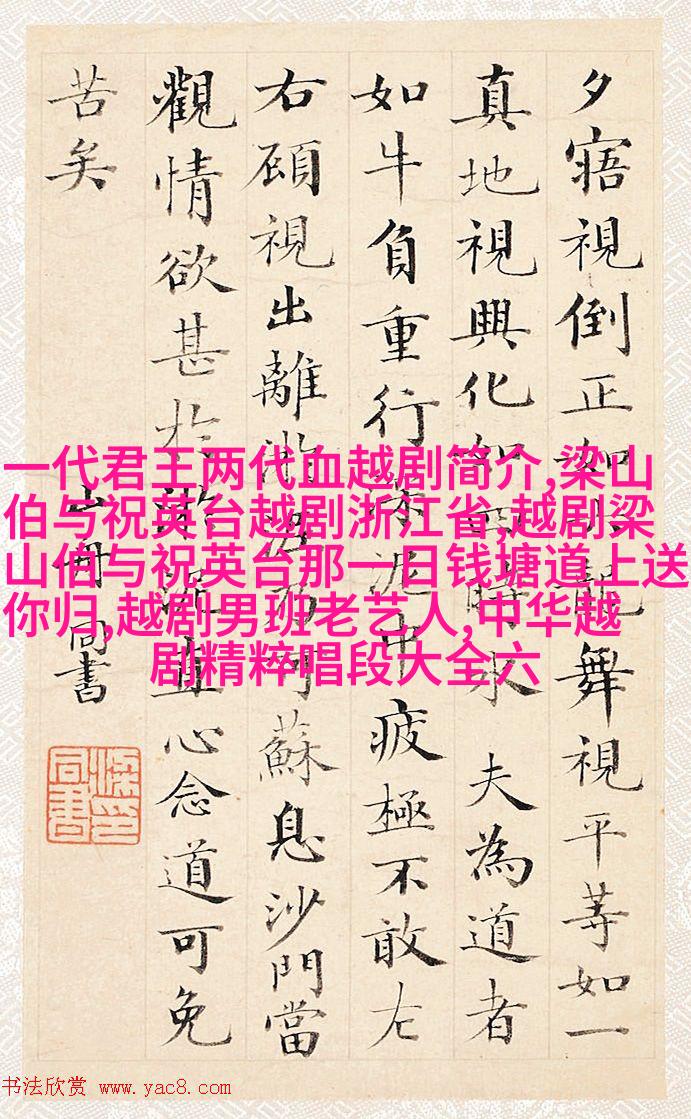 夕寤視倒正如六龍舞視平等如一
真地視興化如四時木 夫為道者
如牛負重行深泥中疲極不敢左
右顧視出離淤泥乃可蘇息沙門當
觀情欲甚於淤泥直心念道可免
苦矣
山舟同書
梁印同書
一代君王两代血越剧简介,梁山
伯与祝英台越剧浙江省,越剧梁
山伯与祝英台那一日钱塘道上送
你归,越剧男班老艺人,中华越
剧精粹唱段大全六
书法欣赏 www.yac8.com